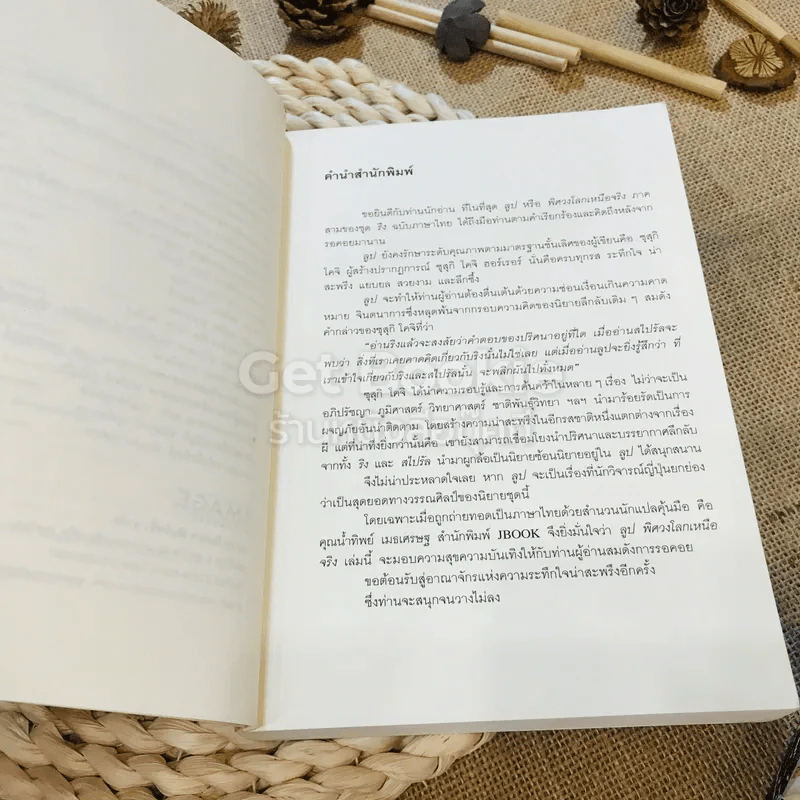 คำนำสำนักพิมพ์
ขอยินดีกับท่านนักอ่าน ที่ในที่สุด ลูป หรือ พิศวงโลกเหนือจริง ภาค
สามของชุด ริง ฉบับภาษาไทย ได้ถึงมือท่านตามคำเรียกร้องและคิดถึงหลังจาก
รอคอยมานาน
ลูป ยังคงรักษาระดับคุณภาพตามมาตรฐานชั้นเลิศของผู้เขียนคือ ซุสุกิ
โคจิ ผู้สร้างปรากฏการณ์ ซุสุกิ โคจิ ฮอร์เรอร์ นั่นคือครบทุกรส ระทึกใจ น่า
สะพรึง แยบยล สวยงาม และลึกซึ้ง
ลูป จะทำให้ท่านผู้อ่านต้องตื่นเต้นด้วยความซ่อนเงื่อนเกินความคาด
หมาย จินตนาการซึ่งหลุดพ้นจากกรอบความคิดของนิยายลึกลับเดิม ๆ สมดัง
คำกล่าวของซุสุกิ โคจิที่ว่า
"อ่านริงแล้วจะสงสัยว่าคำตอบของปริศนาอยู่ที่ใด เมื่ออ่านสไปรัลจะ
พบว่า สิ่งที่เราเคยคาดคิดเกี่ยวกับริงนั้นไม่ใช่เลย แต่เมื่ออ่านลูปจะยิ่งรู้สึกว่า ที่
เราเข้าใจเกี่ยวกับริงและสไปรัลนั้น จะพลิกผันไปทั้งหมด"
ซุสุกิ โคจิ ได้นำความรอบรู้และการค้นคว้าในหลาย ๆ เรื่อง ไม่ว่าจะเป็น
อภิปรัชญา ภูมิศาสตร์ วิทยาศาสตร์ ชาติพันธุ์วิทยา ฯลฯ นำมาร้อยรัดเป็นการ
ผจญภัยอันน่าติดตาม โดยสร้างความน่าสะพรึงในอีกรสชาติหนึ่งแตกต่างจากเรื่อง
ผี แต่ที่น่าทึ่งยิ่งกว่านั้นคือ เขายังสามารถเชื่อมโยงนำปริศนาและบรรยากาศลึกลับ
จากทั้ง ริง และ สไปรัล นำมาผูกล้อเป็นนิยายซ้อนนิยายอยู่ใน ลูป ได้สนุกสนาน
จึงไม่น่าประหลาดใจเลย หาก ลูป จะเป็นเรื่องที่นักวิจารณ์ญี่ปุ่นยกย่อง
ว่าเป็นสุดยอดทางวรรณศิลป์ของนิยายชุดนี้
โดยเฉพาะเมื่อถูกถ่ายทอดเป็นภาษาไทยด้วยสำนวนนักแปลคุ้นมือ คือ
คุณน้ำทิพย์ เมธเศรษฐ สำนักพิมพ์ JBOOK จึงยิ่งมั่นใจว่า ลูป พิศวงโลกเหนือ
จริง เล่มนี้ จะมอบความสุขความบันเทิงให้กับท่านผู้อ่านสมดังการรอคอย
ขอต้อนรับสู่อาณาจักรแห่งความระทึกใจน่าสะพรึงอีกครั้ง
ซึ่งท่านจะสนุกจนวางไม่ลง